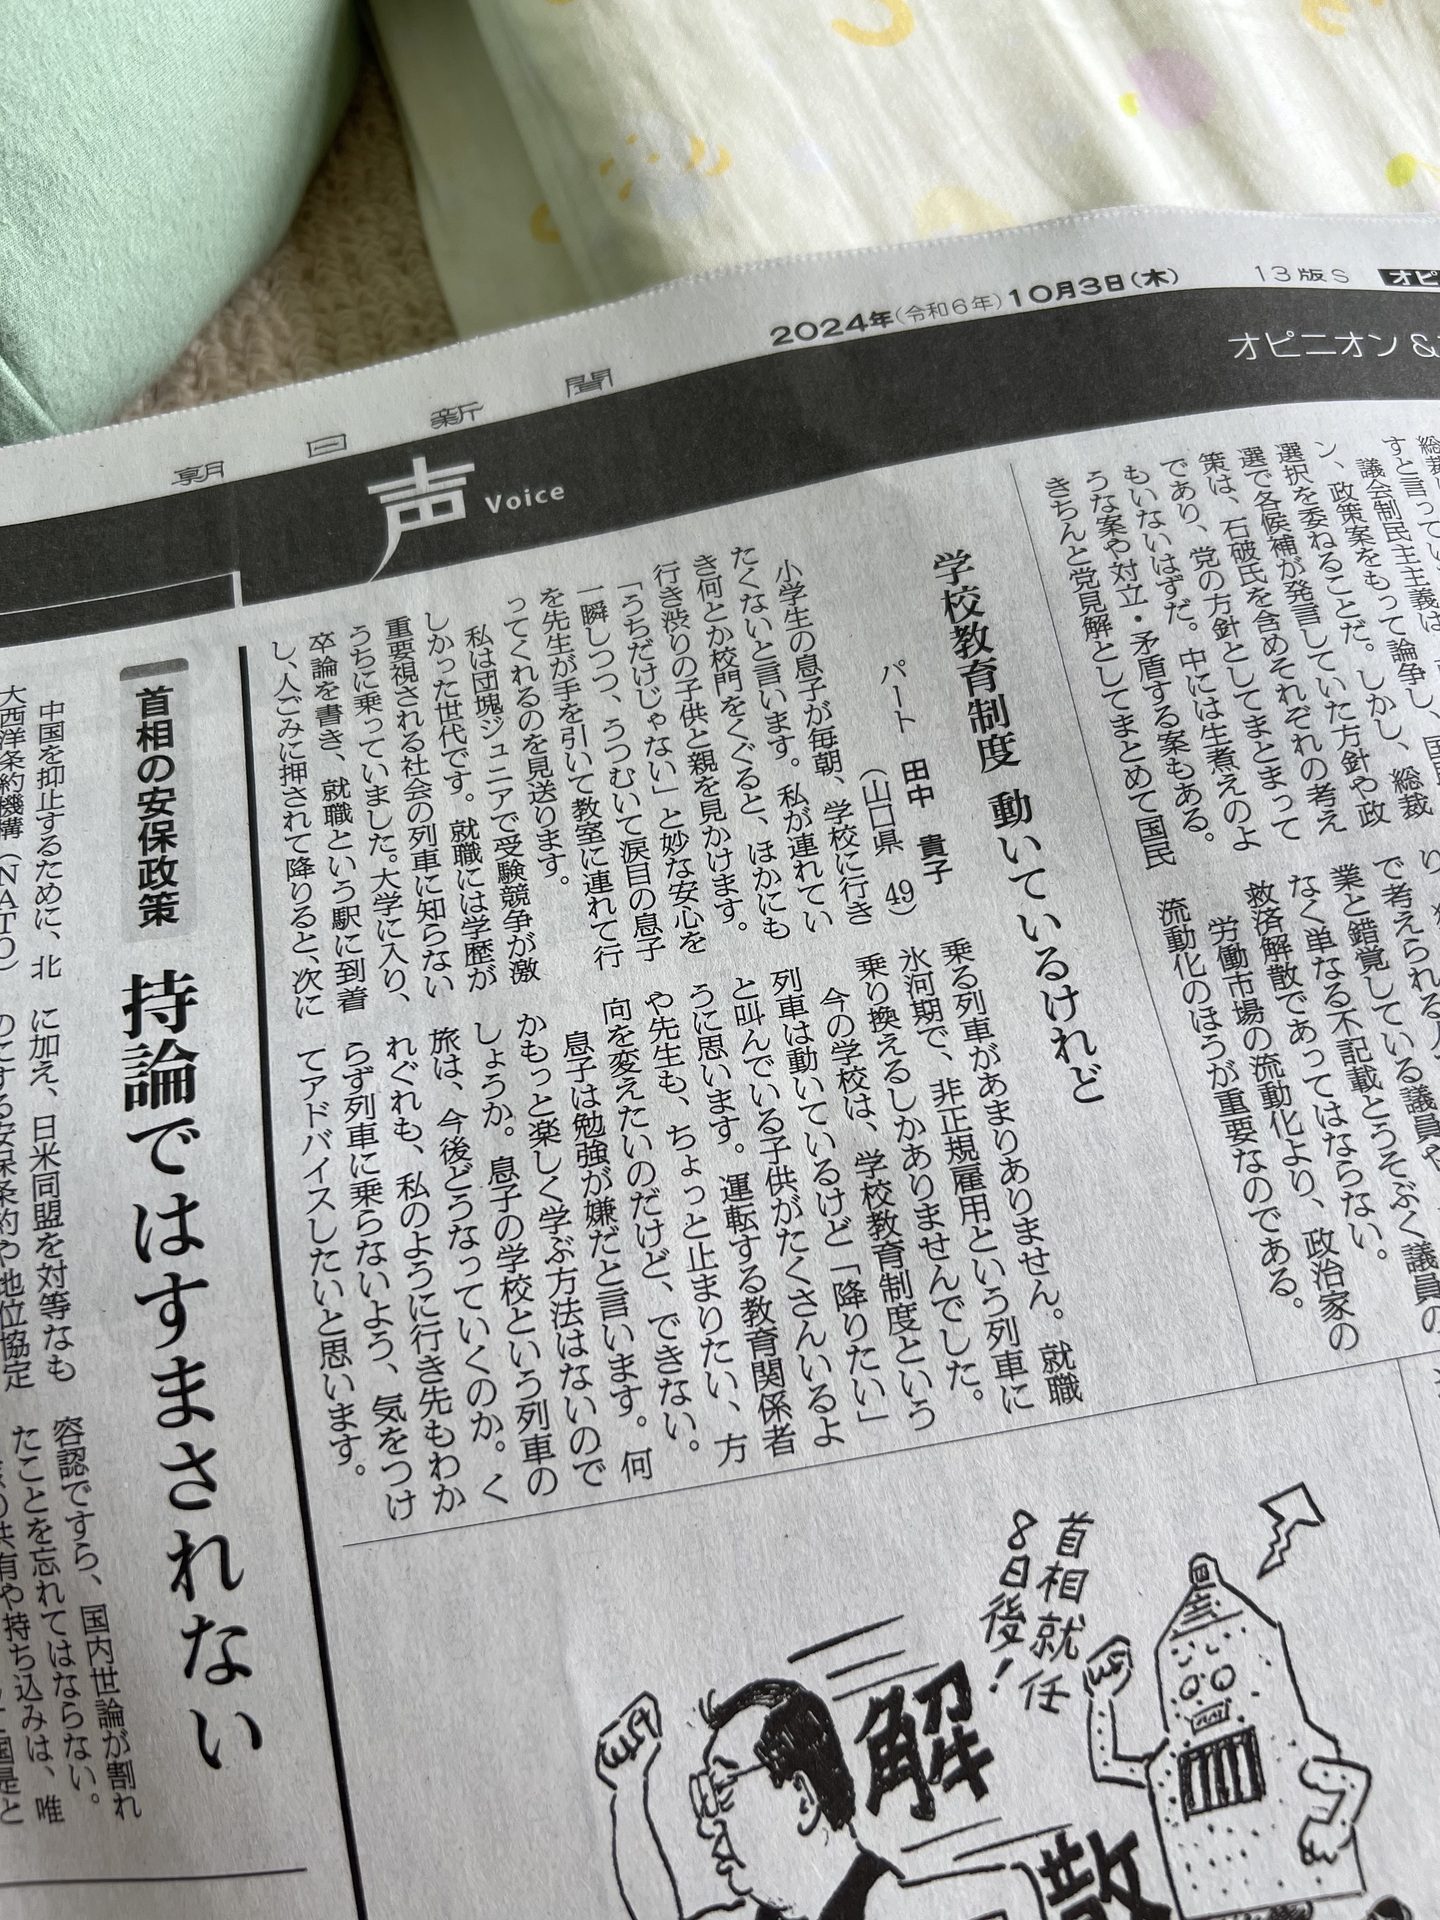 2024年(令和6年)10月3日(木)
13版S
オピ
朝日新聞
オピニオン&
声 Voice
すと言ってい
議会制民主主義は
ン、政策案をもって論争し、国民
選択を委ねることだ。しかし、総裁
選で各候補が発言していた方針や政
策は、石破氏を含めそれぞれの考え
であり、党の方針としてまとまって
もいないはずだ。中には生煮えのよ
うな案や対立・矛盾する案もある。
きちんと党見解としてまとめて国民
で考えられる
業と錯覚している議員や
なく単なる不記載とうそぶく議員の
救済解散であってはならない。
労働市場の流動化より、政治家の
流動化のほうが重要なのである。
学校教育制度 動いているけれど
パート 田中 貴子
(山口県 49)
小学生の息子が毎朝、学校に行き
たくないと言います。私が連れてい
き何とか校門をくぐると、ほかにも
行き渋りの子供と親を見かけます。
「うちだけじゃない」と妙な安心を
一瞬しつつ、うつむいて涙目の息子
を先生が手を引いて教室に連れて行
ってくれるのを見送ります。
私は団塊ジュニアで受験競争が激
しかった世代です。就職には学歴が
重要視される社会の列車に知らない
うちに乗っていました。大学に入り、
卒論を書き、就職という駅に到着
し、人ごみに押されて降りると、次に
乗る列車があまりありません。就職
氷河期で、非正規雇用という列車に
乗り換えるしかありませんでした。
今の学校は、学校教育制度という
列車は動いているけど「降りたい」
と叫んでいる子供がたくさんいるよ
うに思います。運転する教育関係者
や先生も、ちょっと止まりたい、方
向を変えたいのだけど、できない。
息子は勉強が嫌だと言います。何
かもっと楽しく学ぶ方法はないので
しょうか。息子の学校という列車の
旅は、今後どうなっていくのか。く
れぐれも、私のように行き先もわか
らず列車に乗らないよう、気をつけ
てアドバイスしたいと思います。
首相の安保政策
持論ではすまされない
中国を抑止するために、北
大西洋条約機構(NATO)
に加え、日米同盟を対等なも
のにする安保条約や地位協定
容認ですら、国内世論が割れ
たことを忘れてはならない。
共有や持ち込みは、唯
国是と
首相就任
8日後!
解
散